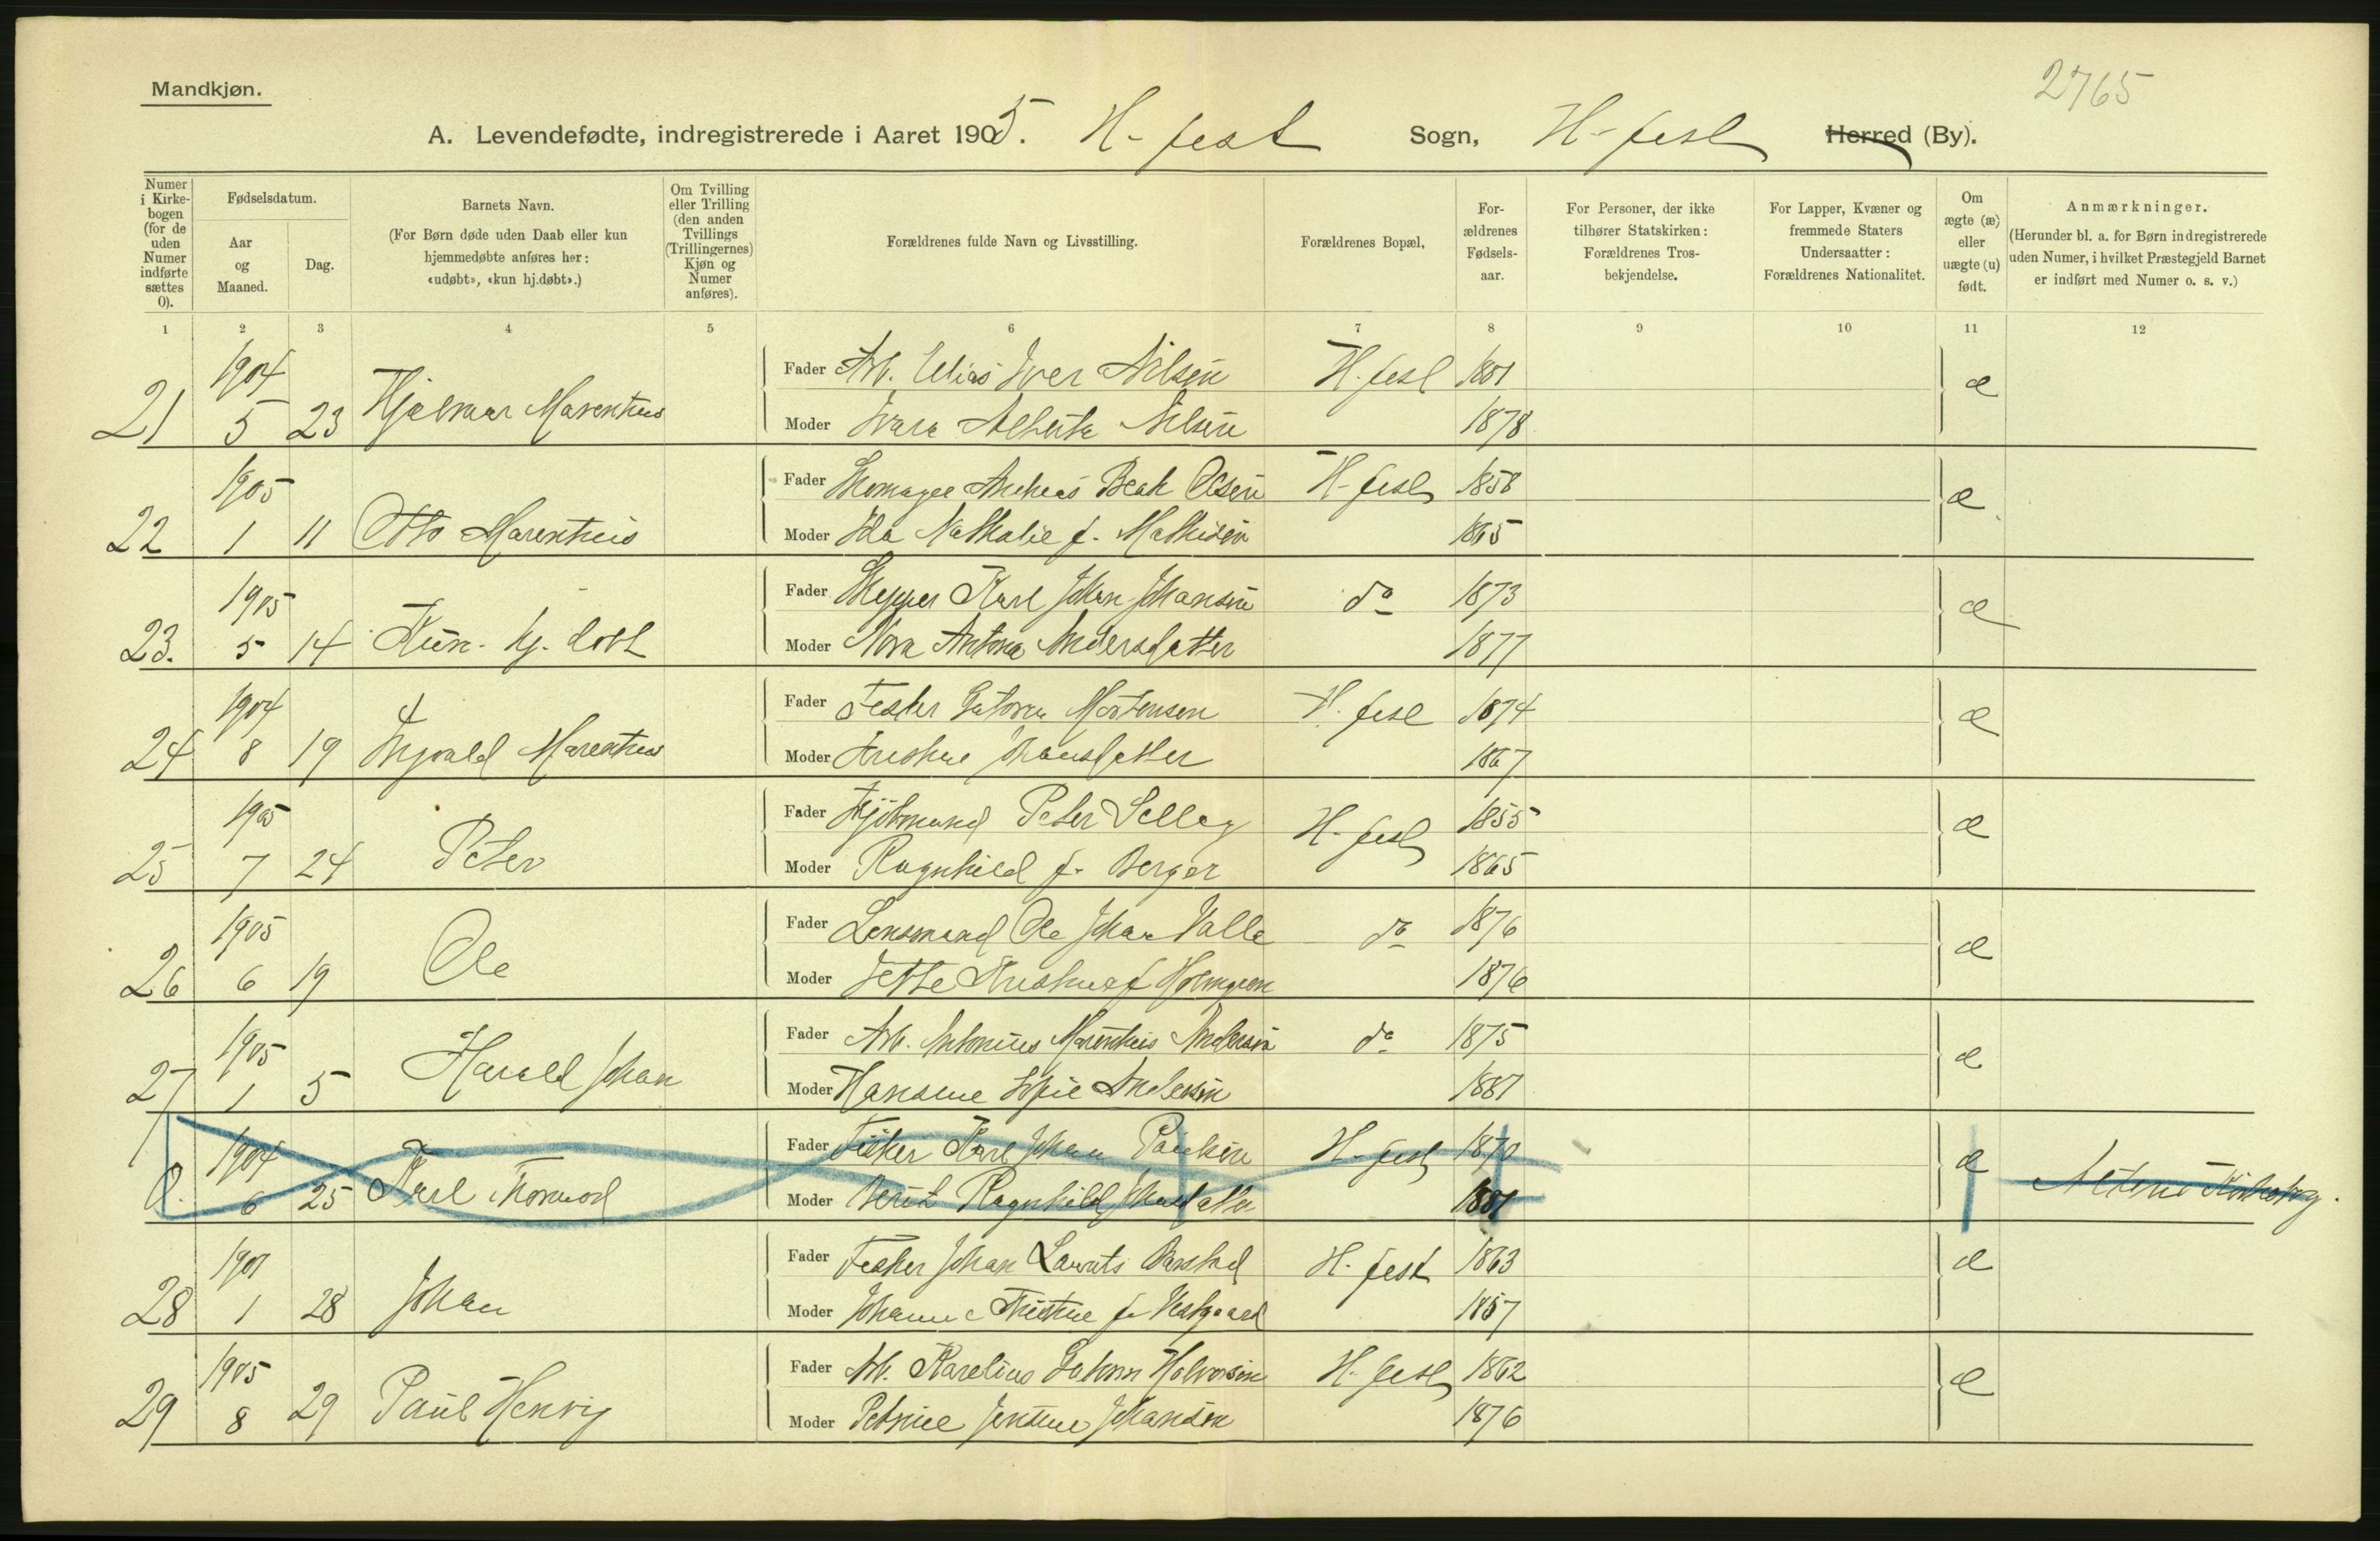 2765
Mandkjøn.
A. Levendefødte, indregistrerede i Aaret 1905. H-fest Sogn, H-fest Herred (By).
Numer i Kirke-bogen (for de uden Numer indførte sættes 0).
Fødselsdatum.
Aar og Maaned.
Dag.
Barnets Navn.
(For Børn døde uden Daab eller kun hjemmedøbte anføres her: «udøbt», «kun hj.døbt».)
Om Tvilling eller Trilling (den anden Tvillings (Trillingernes) Kjøn og Numer anføres).
Forældrenes fulde Navn og Livsstilling.
Forældrenes Bopæl,
For-ældrenes Fødsels-aar.
For Personer, der ikke tilhører Statskirken: Forældrenes Tros-bekjendelse.
For Lapper, Kvæner og fremmede Staters Undersaatter: Forældrenes Nationalitet.
Om ægte (æ) eller uægte (u) født.
Anmærkninger.
(Herunder bl. a. for Børn indregistrerede uden Numer, i hvilket Præstegjeld Barnet er indført med Numer o. s. v.)
1 2 3 4 5 6 7 8 9 10 11 12
1904 Fader Arb. Elias Iver Nilsen H. fest 1881 æ
21 5 23 Hjalmar Marentius
Moder Ivara Alberta Nilsen 1878
1905 Fader Andreas Beck Olsen H-fest 1858 æ
22 1 11 Otto Marentius Moder Ida Nathalie f. Mathisen 1865
1905 Fader Skipper Karl Johan Johansen do 1873 æ
23. 5 14 Kun. hj. dobt Moder Nora Antona Andersdatter 1877
1904 Fader Fisker Mortensen H. fest 1874 æ
24 8 19 Marentius Moder Kristine Hansdatter 1867
1905 Fader Peter Selley H. fest 1855 æ
25 7 24 Peter Moder Ragnhild f. Berger 1865
1905 Fader Lensmand Ole Johan Valle do 1876 æ
26 6 19 Ole Moder Jette Kristine f Holmgren 1876
1905 Fader Arb. Antonius Marentius Andersen do 1875 æ
27 1 5 Harald Johan Moder Hansine Sofie Andersen 1887
1904 Fader Fisker Karl Johan Paulsen H-fest 1870 æ
0. 6 25 Karl Tormod Moder Berit Ragnhild 1881
Fader Fisker Johan Laurits H. fest 1863 æ
28 1 28 Johan Moder Johanne Kristine f. Vestgaard 1857
1905 Fader Arb. Karelius Halvorsen H. fest 1862 æ
29 8 29 Paul Henry Moder Petrine Jensine Johansen 1876